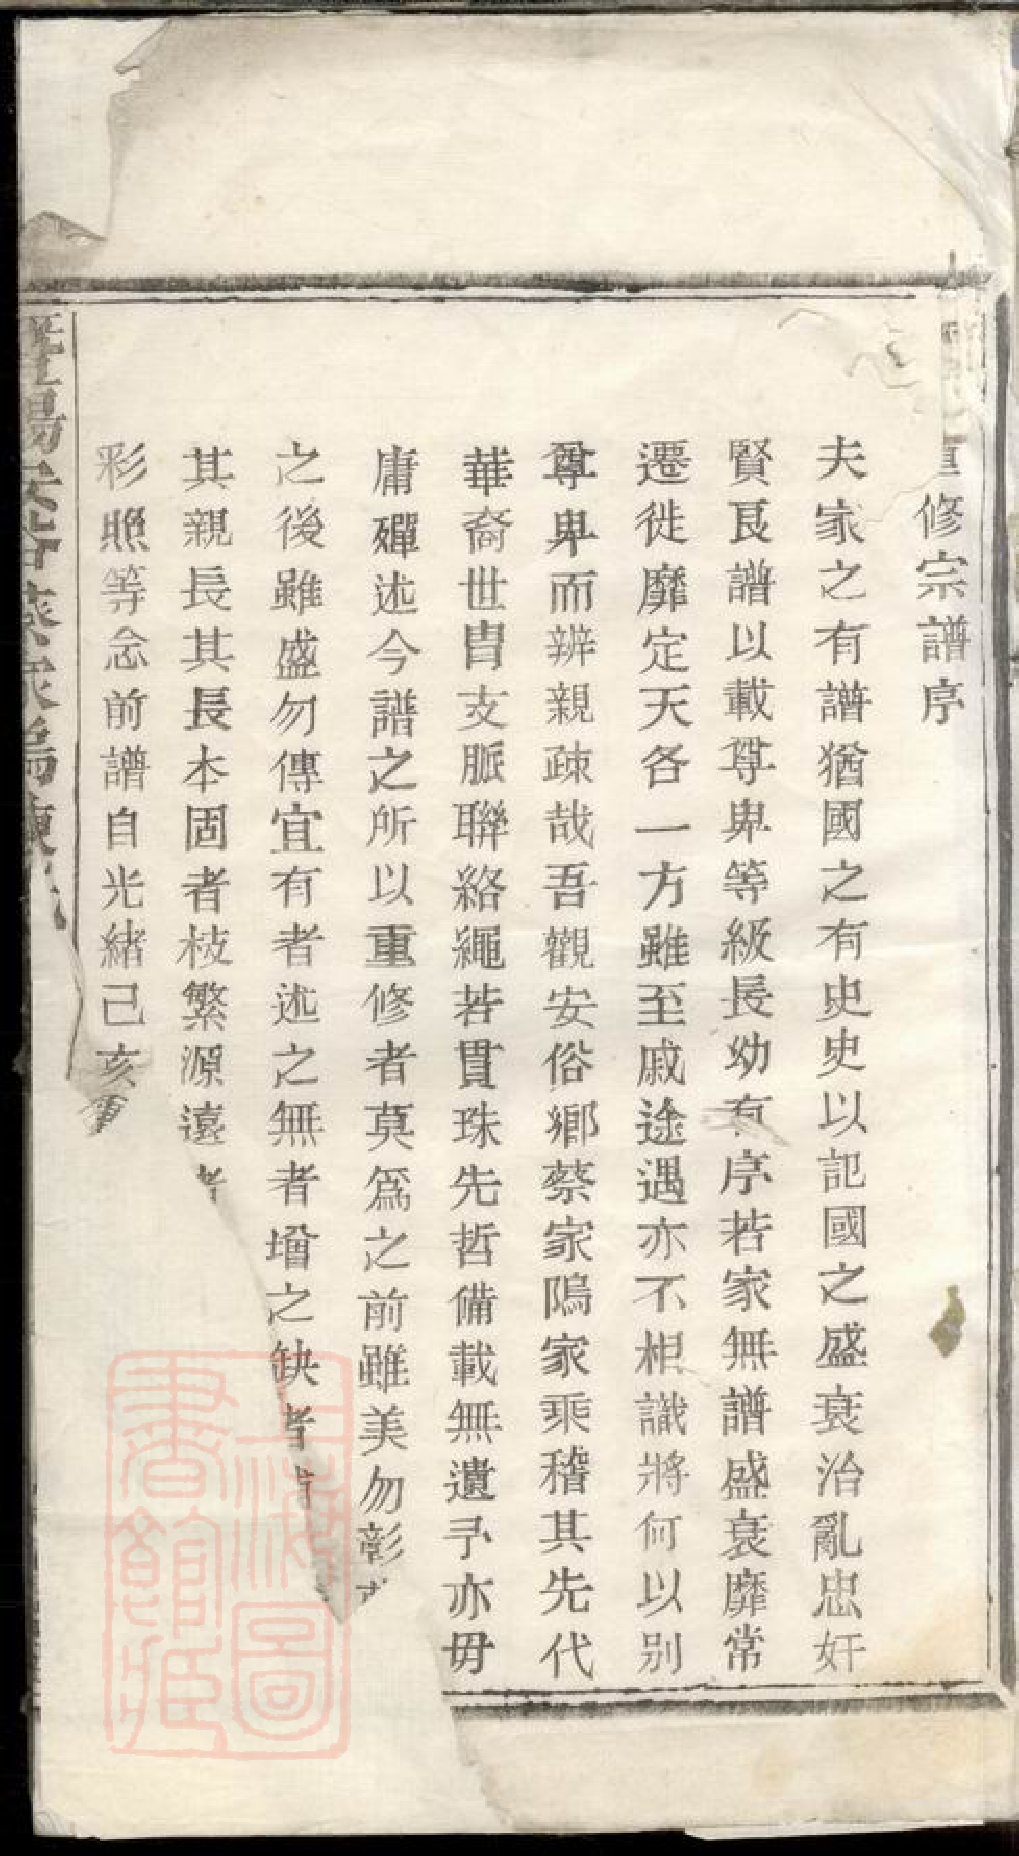 重修宗譜序
夫家之有譜猶國之有史史以記國之盛衰治亂忠奸
賢良譜以載尊卑等級長幼有序若家無譜盛衰靡常
遷徙靡定天各一方雖至戚途遇亦不相識將何以别
尊卑而辨親疎哉吾觀安俗鄉蔡家隝家乘稽其先代
華裔世胄支脈聯絡繩若貫珠先哲備載無遺予亦毋
庸殫述今譜之所以重修者莫爲之前雖美勿彰
之後雖盛勿傳宜有者述之無者增之缺者
其親長其長本固者枝繁源遠者
彩照等念前譜自光緒己亥重
暨陽安俗蔡家隝陳氏
上海圖書館藏